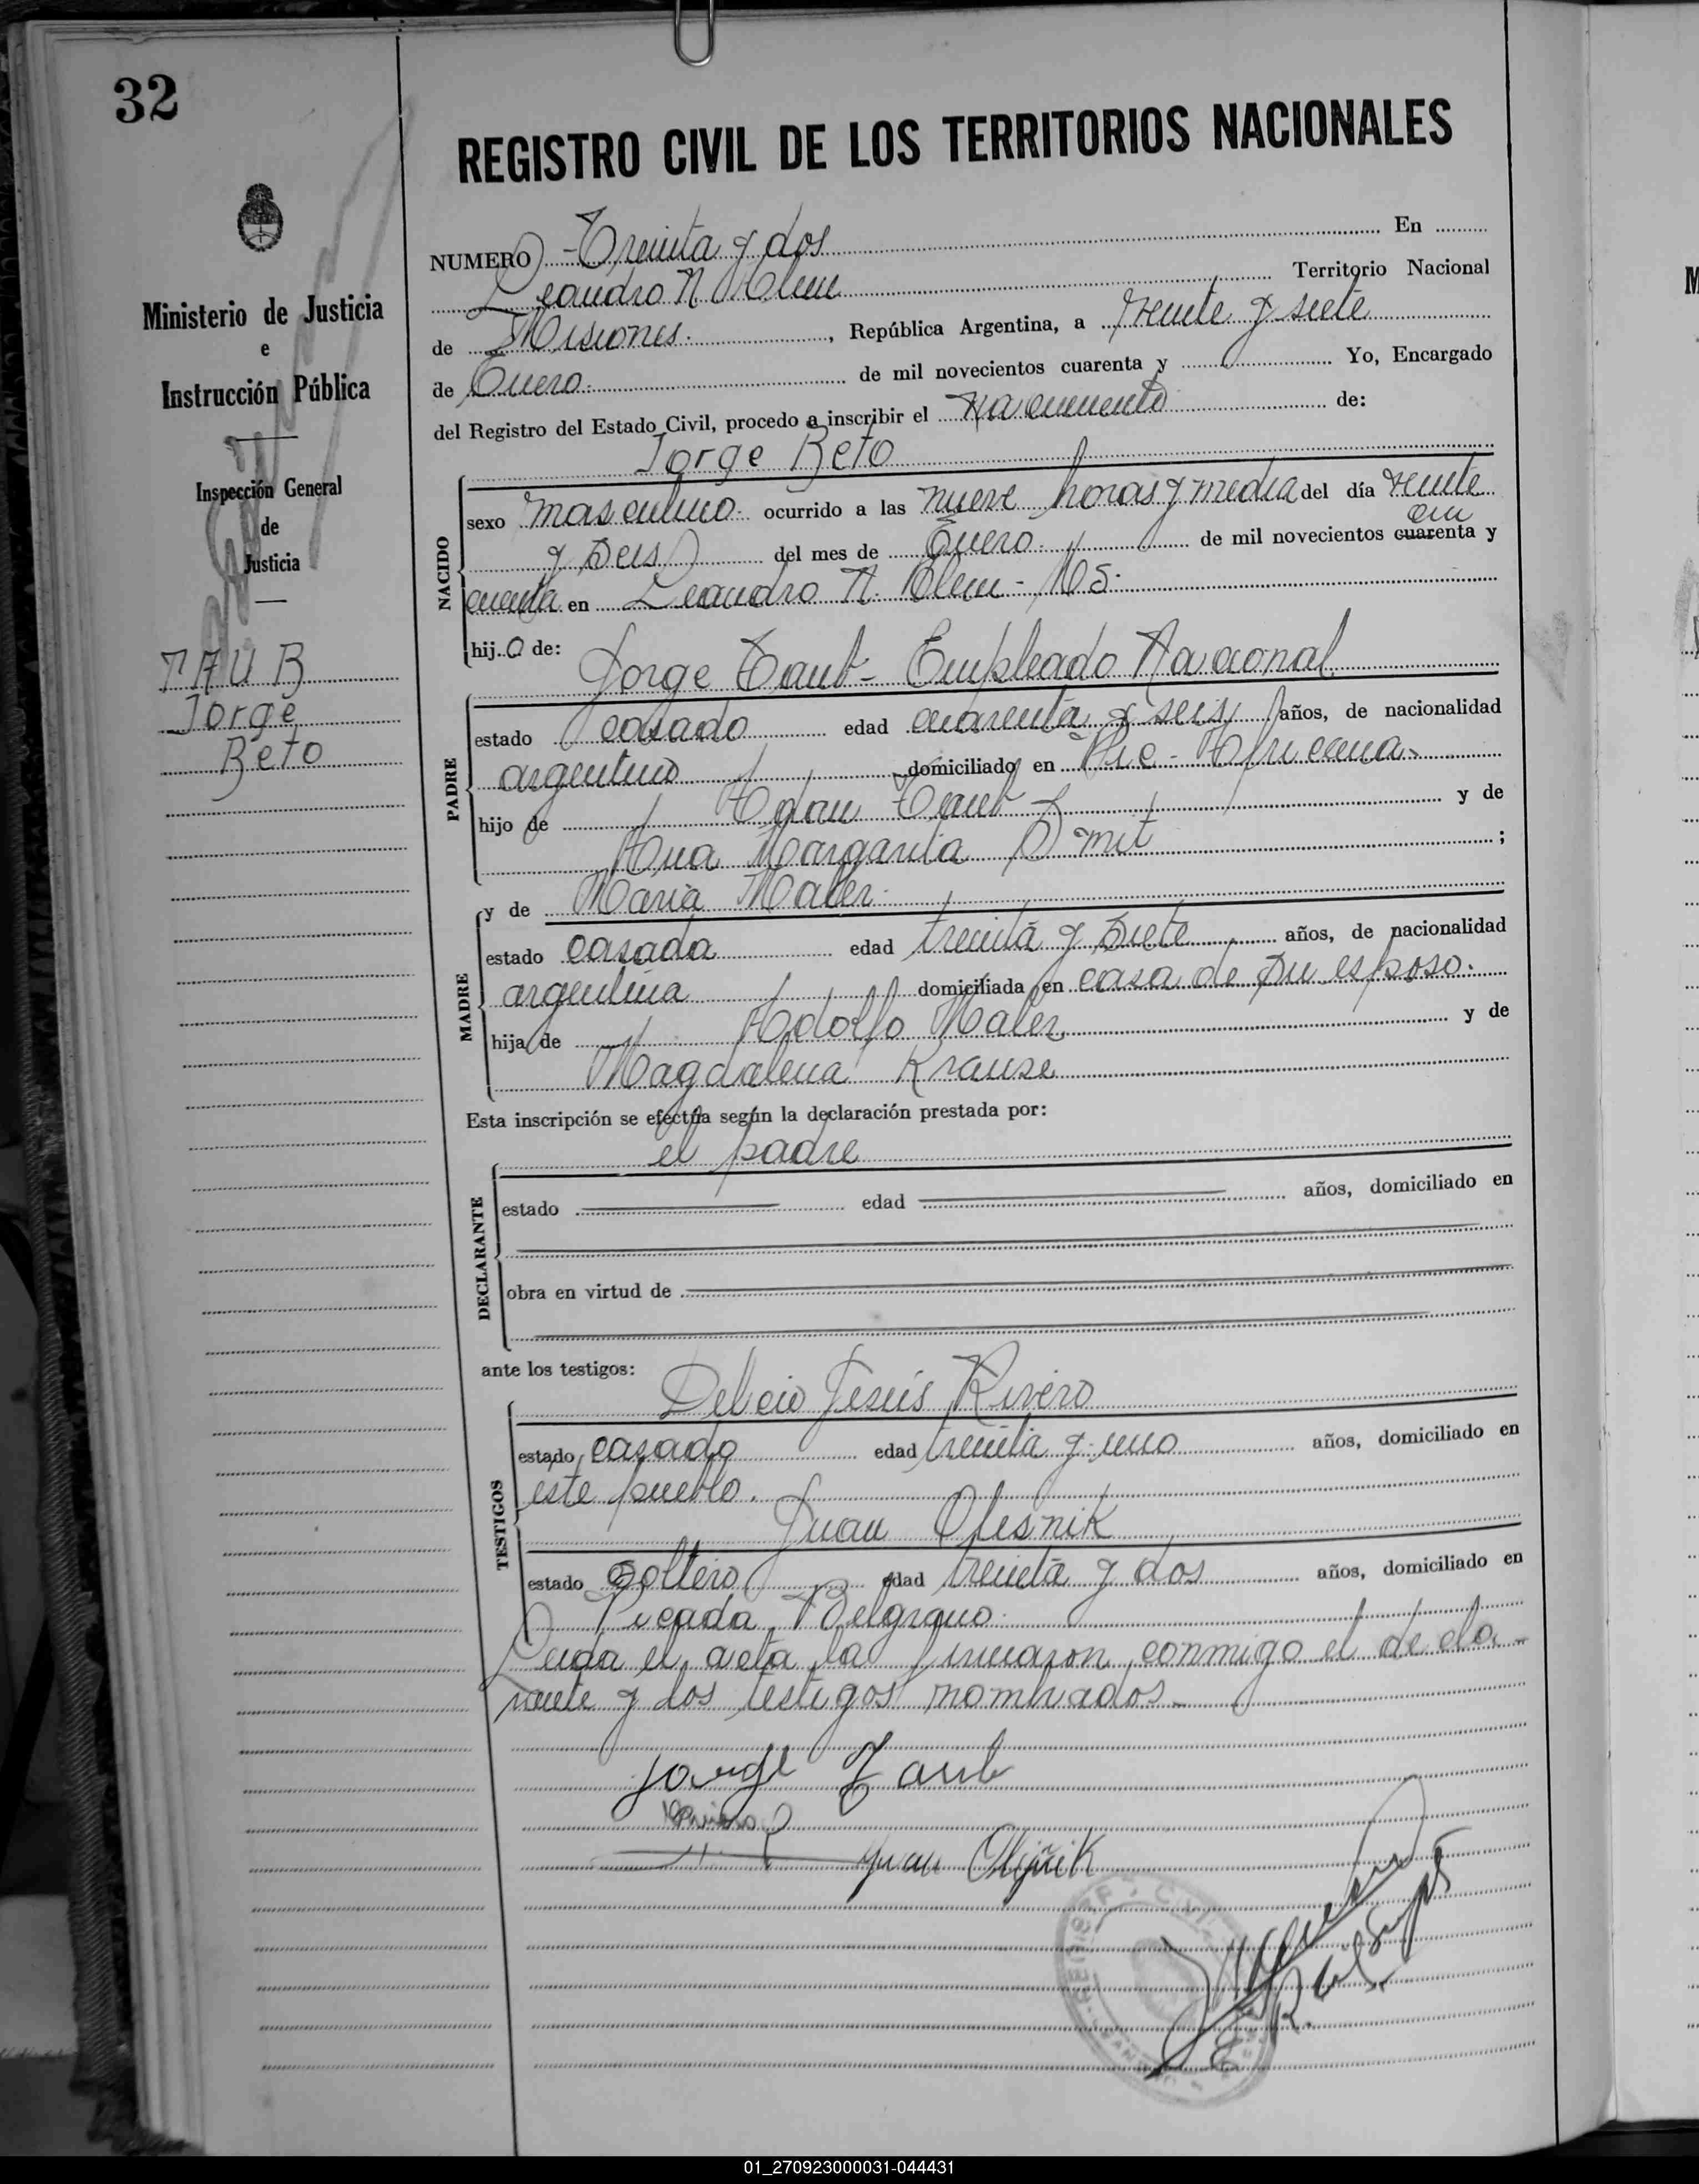 32
REGISTRO CIVIL DE LOS TERRITORIOS NACIONALES
Ministerio de Justicia
e
Instrucción Pública
Inspección General
de
Justicia
TAUB
Jorge
Beto
NUMERO Treinta y dos En
Leandro N. Alem Territorio Nacional
de Misiones. , República Argentina, a veinte y siete
de Enero. de mil novecientos cuarenta y Yo, Encargado
del Registro del Estado Civil, procedo a inscribir el nacimiento de:
Jorge Beto
NACIDO
sexo masculino ocurrido a las nueve horas y media del día veinte
y seis del mes de Enero. de mil novecientos cuarenta y
cin
cuenta en Leandro N. Alem - Ms.
hijo de:
Jorge Taub - Empleado Nacional
PADRE
estado casado edad cuarenta y seis años, de nacionalidad
argentino domiciliado en Pic. Africana
hijo de Adan Taub y de
Ana Margarita Smit ;
y de Maria Maler
MADRE
estado casada edad treinta y siete años, de nacionalidad
argentina domiciliada en casa de su esposo.
hija de Adolfo Maler y de
Magdalena Krause
Esta inscripción se efectúa según la declaración prestada por:
el padre
DECLARANTE
estado edad años, domiciliado en
obra en virtud de
ante los testigos:
Delcio Jesús Rivero
TESTIGOS
estado casado edad treinta y uno años, domiciliado en
este pueblo.
Juan Olesnik
estado soltero edad treinta y dos años, domiciliado en
Picada Belgrano.
Leida el acta la firmaron conmigo el decla-
rante y los testigos nombrados.
Jorge Taub
Juan Olijñik
01_270923000031-044431